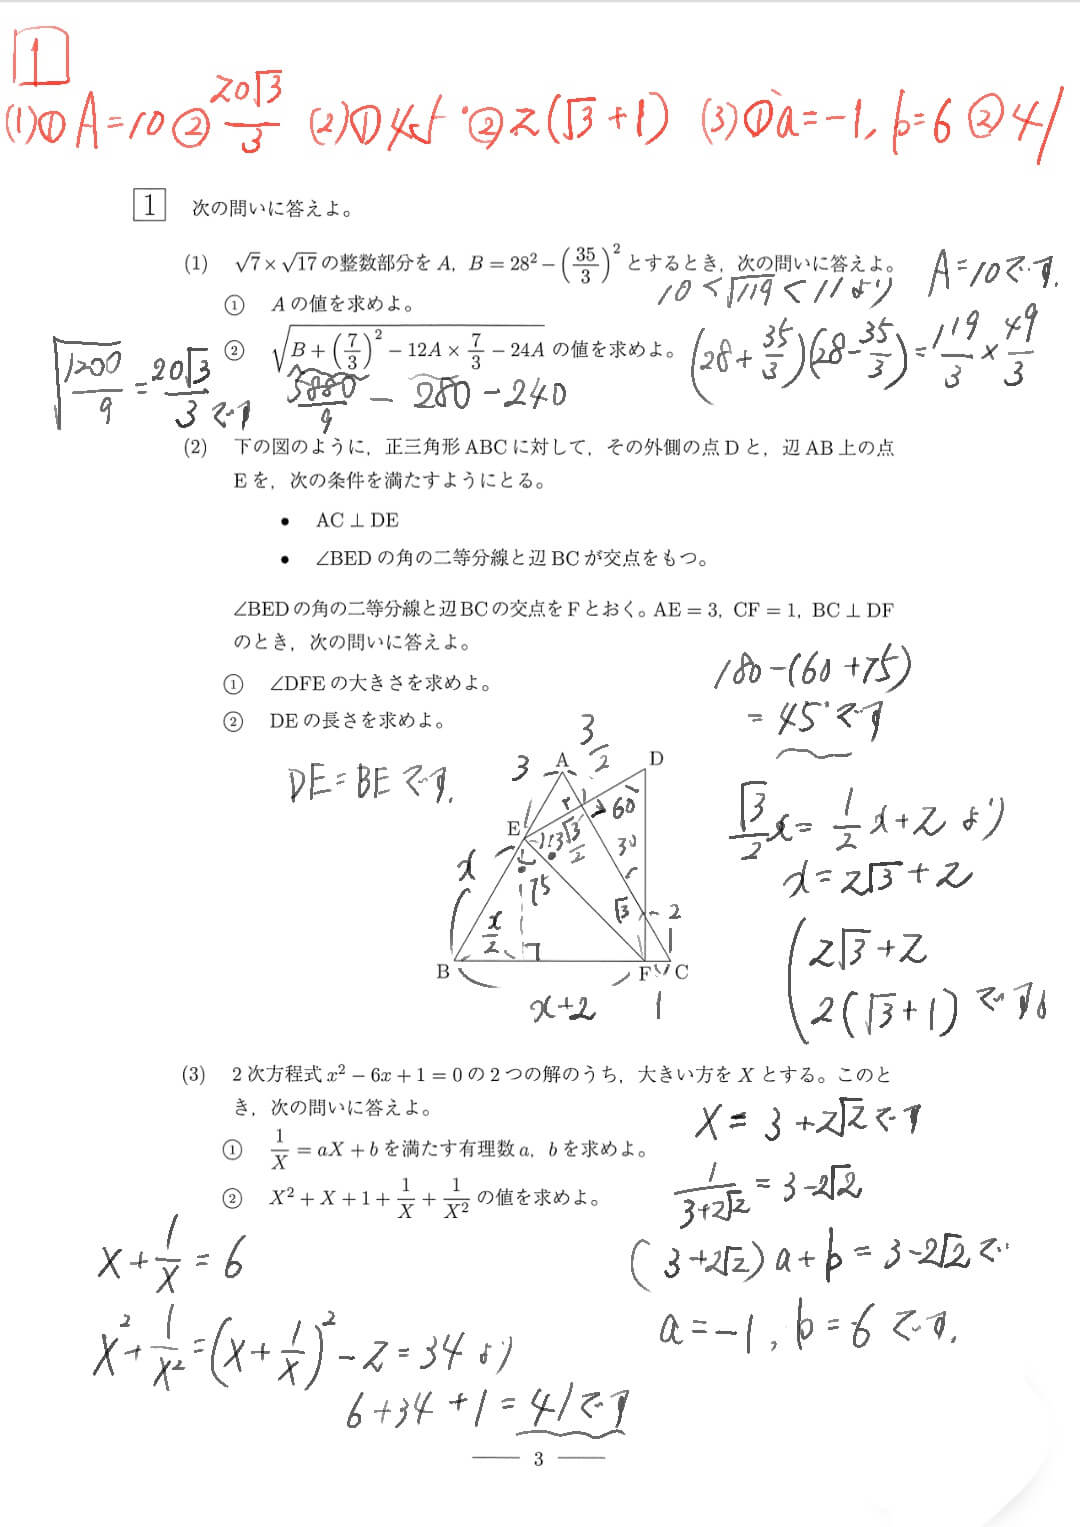 1
(1)① A=10 ② 20√3/3 (2)① 45° ② 2(√3+1) (3)① a=-1, b=6 ② 41
1 次の問いに答えよ。
(1) √7×√17の整数部分をA, B = 28² − (35/3)² とするとき, 次の問いに答えよ。
10<√119<11より A=10です.
① Aの値を求めよ。
② √(B + (7/3)² − 12A × 7/3 − 24A) の値を求めよ。
(28+35/3)(28-35/3)=119/3×49/3
√(1200/9)=20√3/3です
5880/9 - 280-240
(2) 下の図のように, 正三角形ABCに対して, その外側の点Dと, 辺AB上の点
Eを, 次の条件を満たすようにとる。
• AC ⊥ DE
• ∠BEDの角の二等分線と辺BCが交点をもつ。
∠BEDの角の二等分線と辺BCの交点をFとおく。AE = 3, CF = 1, BC ⊥ DF
のとき, 次の問いに答えよ。
① ∠DFEの大きさを求めよ。
② DEの長さを求めよ。
180-(60+75)
=45°です
DE=BEです.
3
3/2
A
D
60
E
3√3/2
30
x
75
√3
2
x/2
B
F
C
x+2
1
√3/2x=1/2x+2より
x=2√3+2
2√3+2
2(√3+1)です。
(3) 2次方程式 x² − 6x + 1 = 0 の2つの解のうち, 大きい方をXとする。このと
き, 次の問いに答えよ。
① 1/X = aX + b を満たす有理数a, bを求めよ。
② X² + X + 1 + 1/X + 1/X² の値を求めよ。
X=3+2√2です
1/(3+2√2)=3-2√2
(3+2√2)a+b=3-2√2で
a=-1, b=6です.
X+1/X=6
X²+1/X²=(X+1/X)²-2=34より
6+34+1=41です
3